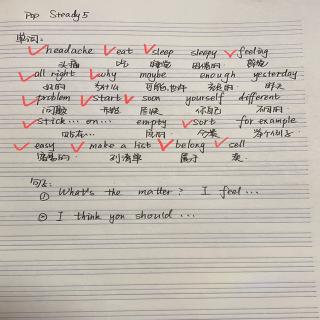 Pop Steady 5
单词:
headache eat sleep sleepy feeling
头痛 吃 睡觉 困倦的 感觉
all right why maybe enough yesterday
好的 为什么 可能,也许 足够的 昨天
problem start soon yourself different
问题 开始 很快 你自己 不同的
stick... on... empty sort for example
贴在... 空的 分类 举个例子
easy make a list belong sell
容易的 列清单 属于 卖
句子:
① What's the matter? I feel ...
② I think you should ...